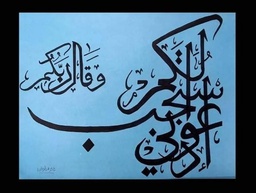 وقال ربكم
ادعوني
أستجب
لكم